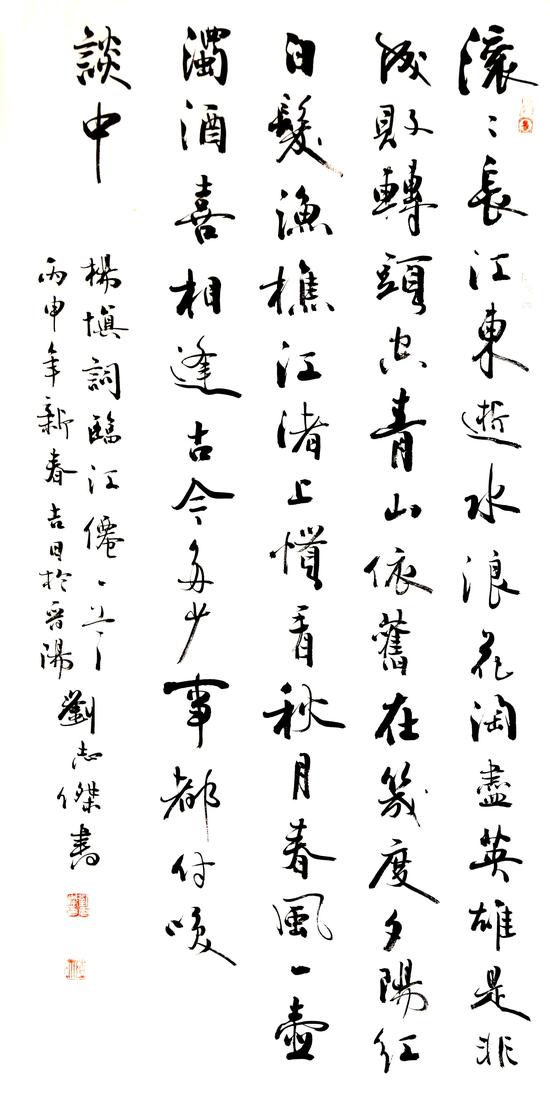 滾〻長江東逝水浪花淘盡英雄是非
成敗轉頭空青山依舊在幾度夕陽紅
白髮漁樵江渚上慣看秋月春風一壺
濁酒喜相逢古今多少事都付咲
談中
楊慎詞臨江僊
丙申年新春吉日於晋陽
劉志傑書